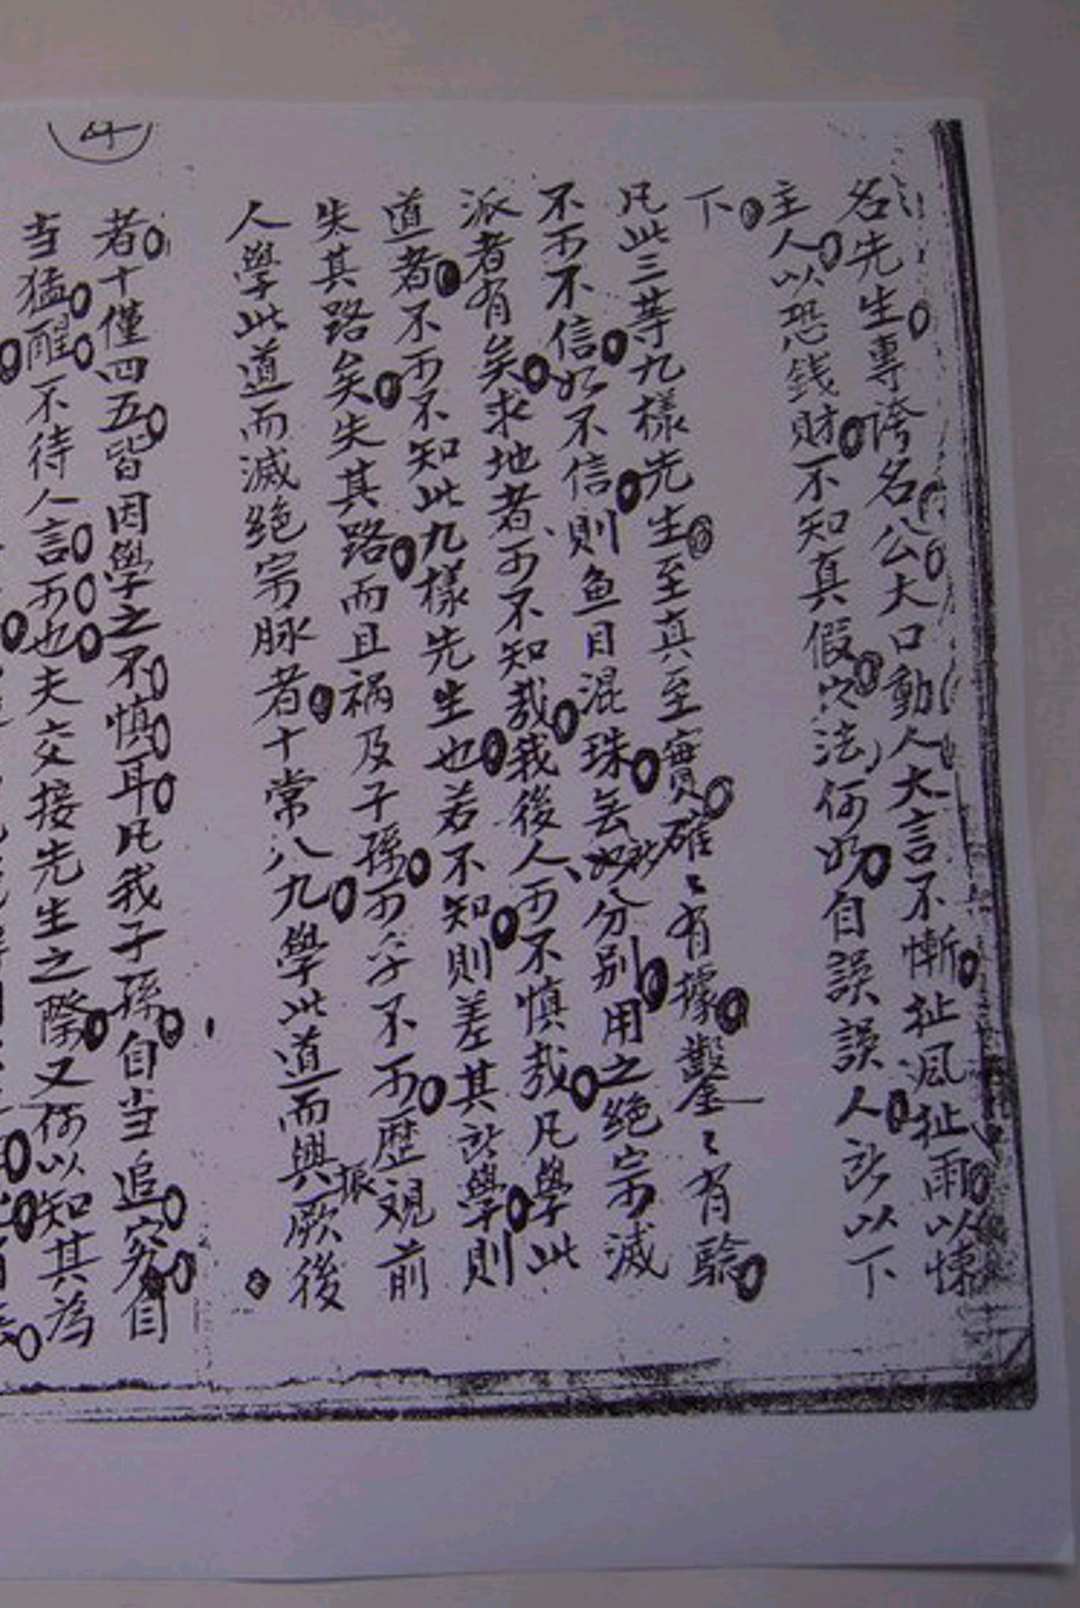 名先生專誇名公大口動人大言不慚扯風扯雨以悚
主人以恐錢財不知真假穴法何如自誤誤人所以下
下
凡此三等九樣先生至真至實確〻有據鑿〻有驗
不可不信如不信則鱼目混珠無所分别用之绝宗滅
派者有矣求地者可不知哉我後人可不慎哉凡學此
道者不可不知此九樣先生也若不知則差其所學則
失其路矣失其路而且祸及子孫可乎不可歷观前
人學此道而滅绝宗脉者十常八九學此道而興振厥後
者十僅四五皆因學之不慎耳凡我子孫自当追究自
当猛醒不待人言可也夫交接先生之際又何以知其為
4